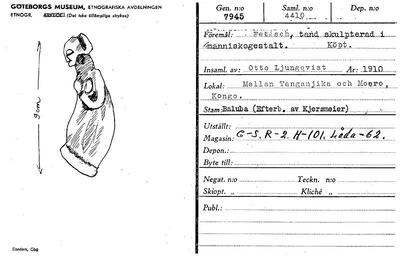 GÖTEBORGS MUSEUM, ETNOGRAFISKA AVDELNINGEN
ETNOGR. (Det icke tillämpliga strykes)
9 cm
Elanders, Gbg
Gen. n:o Saml. n:o Dep. n:o
7945 4410
Föremål: Fetisch, tand skulpterad i
människogestalt. Köpt.
Insaml. av: Otto Ljungqvist År: 1910
Lokal: Mellan Tanganjika och Moero,
Kongo.
Stam: Baluba (Efterb. av Kjersmeier)
Utställt:
Magasin: C-S. R-2. H-101. Låda-62.
Depon.:
Byte till:
Negat. n:o Teckn. n:o
Skiopt. „ Kliché „
Publ.: